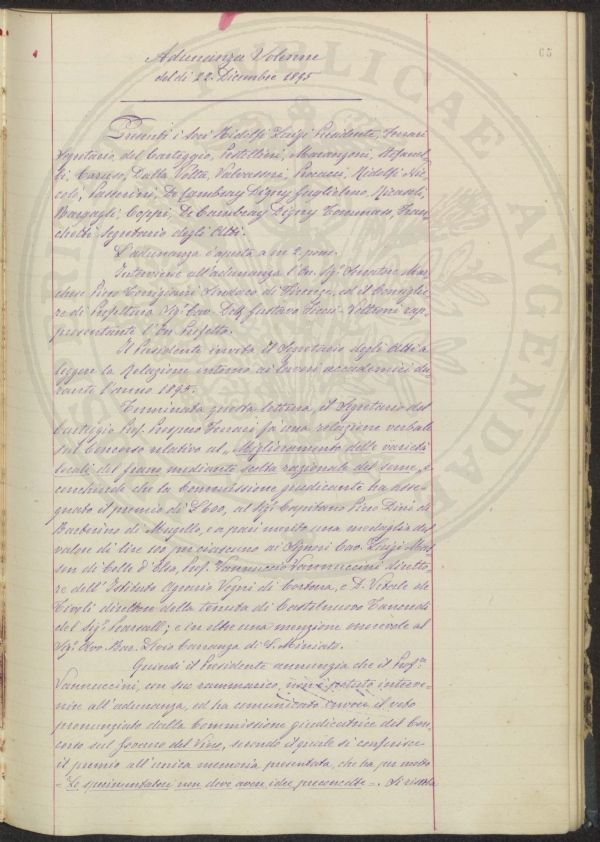 65
Adunanza Solenne
del dì 22 Dicembre 1895
Presenti i Soci Ridolfi Luigi Presidente, Ferrari
Segretario del Carteggio, Pestellini, Marangoni, Stefanel
li, Caruso, Dalla Volta, Valvassori, Pucci, Ridolfi Nic
colò, Passerini, De Cambray Digny Guglielmo, Ricasoli,
Bargagli, Coppi, De Cambray Digny Tommaso, Fran
chetti Segretario degli Atti.
L'adunanza è aperta a ore 2 pom.
Interviene all'adunanza l'On. Sigr. Senatore Mar
chese Pietro Torrigiani Sindaco di Firenze, ed il Consiglie
re di Prefettura Sigr. Cav. Dott. Gustavo Veltroni rap
presentante l'On. Prefetto.
Il Presidente invita il Segretario degli Atti a
leggere la Relazione intorno ai lavori accademici du
rante l'anno 1895.
Terminata questa lettura, il Segretario del
Carteggio Prof. Prospero Ferrari fà una relazione verbale
sul Concorso relativo al „ Miglioramento delle varietà
locali del grano mediante scelta razionale del seme „ e
conchiude che la Commissione giudicante ha asse
gnato il premio di L. 600, al Sigr. Capitano Piero Dini di
Barberino di Mugello, e a pari merito una medaglia del
valore di lire 100 per ciascuno ai Signori Cav. Luigi Mas
son di Colle d'Elsa, Prof. Vannuccio Vannuccini diretto
re dell'Istituto Agrario Vegni di Cortona, e D. Vitale de
Tivoli direttore della tenuta di Castelnuovo Tancredi
del Sigr. Pearsall; e in oltre una menzione onorevole al
Sigr. Avv. Bar. Livio Carranza di S. Miniato.
Quindi il Presidente annunzia che il Prof.
Vannuccini, con suo rammarico, non è potuto interve
nire all'adunanza, ed ha comunicato invece il voto
pronunziato dalla Commissione giudicatrice del Con
corso sul Governo del Vino, secondo il quale si conferisce
il premio all'unica memoria presentata, che ha per motto
= Lo sperimentatore non deve avere idee preconcette =. Si